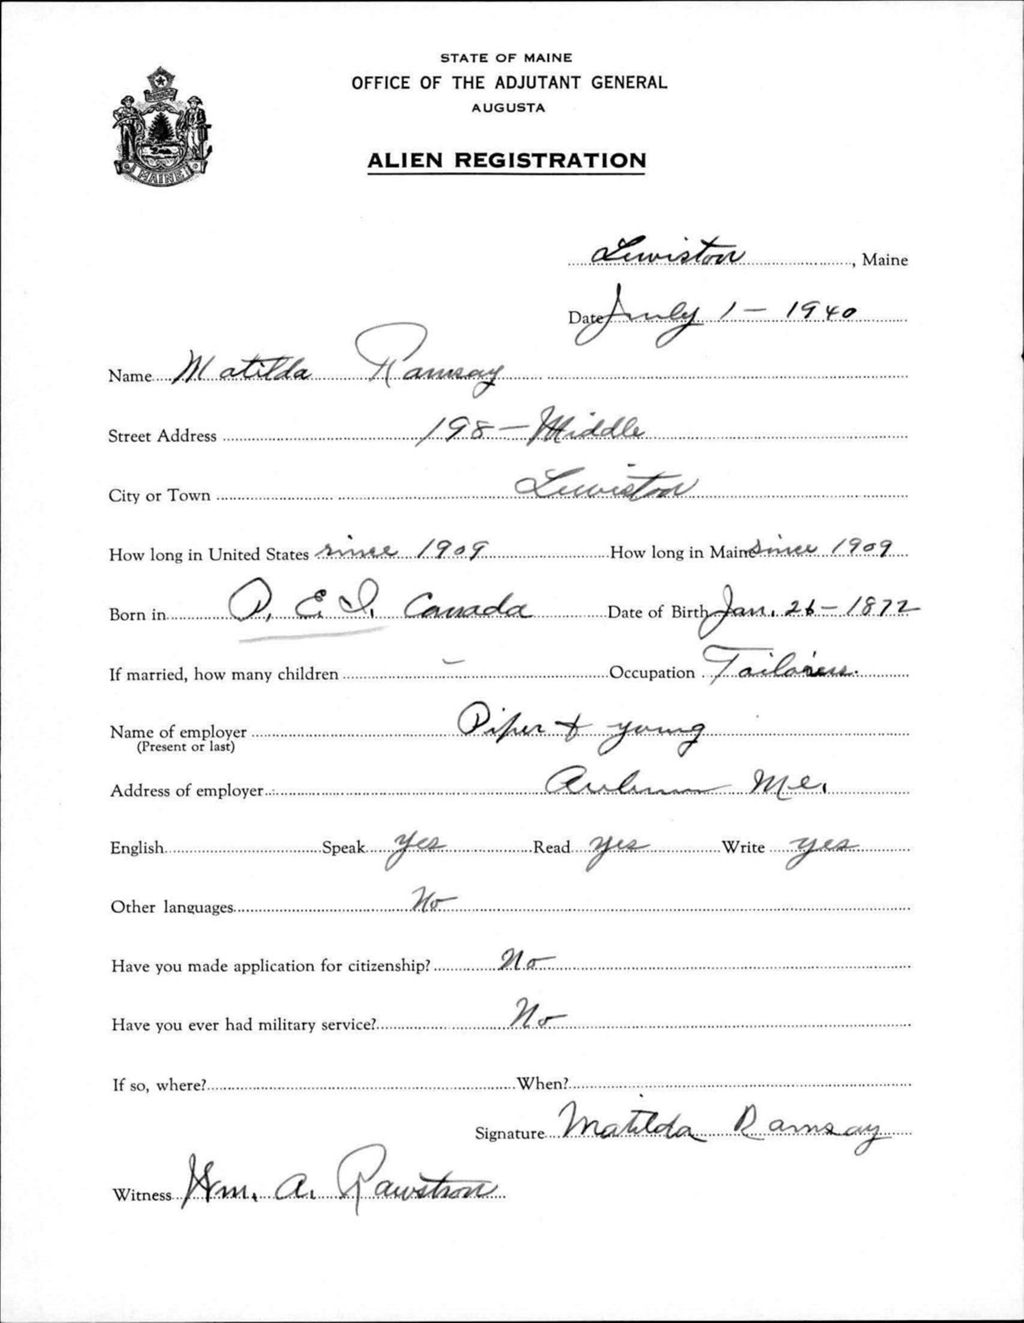 STATE OF MAINE
OFFICE OF THE ADJUTANT GENERAL
AUGUSTA
ALIEN REGISTRATION
MAINE
Lewiston, Maine
Date July 1 - 1940
Name Matilda Ramsay
Street Address 198 - Middle
City or Town Lewiston
How long in United States since 1909 How long in Maine since 1909
Born in P. E. I. Canada Date of Birth Jan. 26 - 1872
If married, how many children - Occupation Tailoress.
Name of employer Piper & Young
(Present or last)
Address of employer Auburn Me.
English Speak yes Read yes Write yes
Other languages No
Have you made application for citizenship? No
Have you ever had military service? No
If so, where? When?
Signature Matilda Ramsay
Witness Wm. A. Rawstron